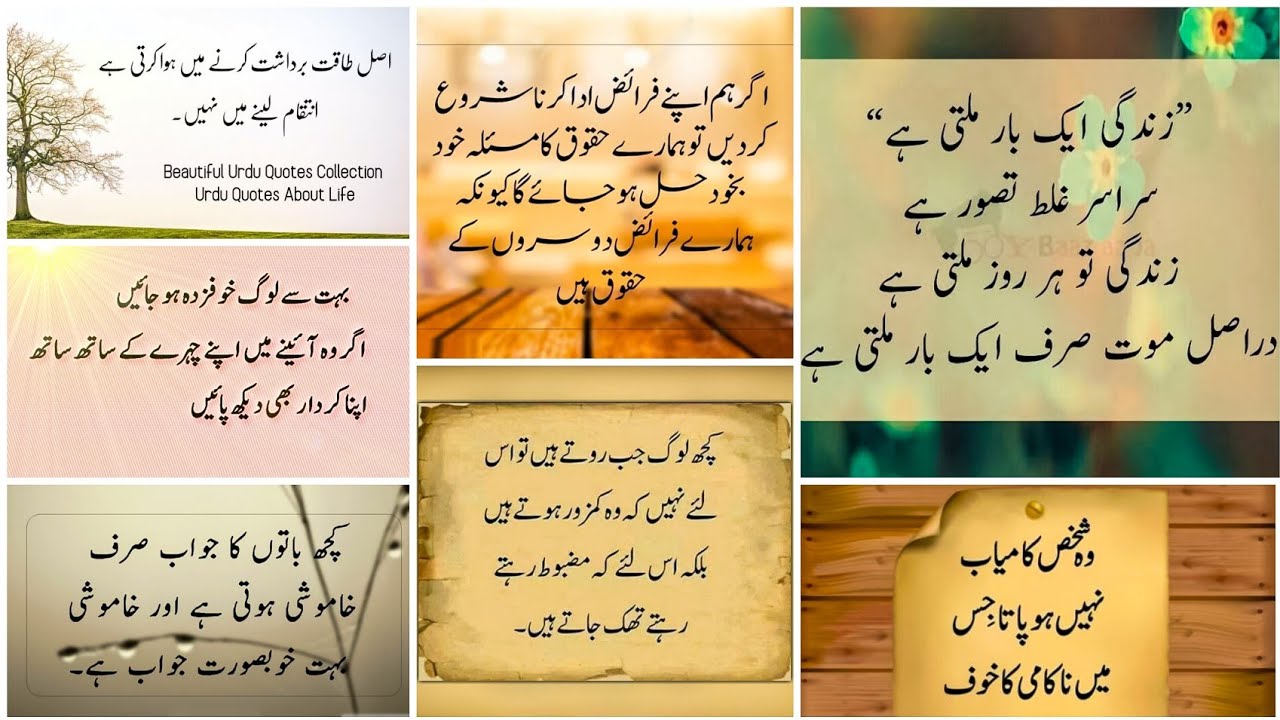 اصل طاقت برداشت کرنے میں ہوا کرتی ہے
انتقام لینے میں نہیں۔
Beautiful Urdu Quotes Collection
Urdu Quotes About Life
بہت سے لوگ خوفزدہ ہو جائیں
اگر وہ آئینے میں اپنے چہرے کے ساتھ ساتھ
اپنا کردار بھی دیکھ پائیں
کچھ باتوں کا جواب صرف
خاموشی ہوتی ہے اور خاموشی
بہت خوبصورت جواب ہے۔
اگر ہم اپنے فرائض ادا کرنا شروع
کر دیں تو ہمارے حقوق کا مسئلہ خود
بخود حل ہو جائے گا کیونکہ
ہمارے فرائض دوسروں کے
حقوق ہیں
کچھ لوگ جب روتے ہیں تو اس
لئے نہیں کہ وہ کمزور ہوتے ہیں
بلکہ اس لئے کہ مضبوط رہتے
رہتے تھک جاتے ہیں۔
”زندگی ایک بار ملتی ہے“
سراسر غلط تصور ہے
زندگی تو ہر روز ملتی ہے
دراصل موت صرف ایک بار ملتی ہے
وہ شخص کامیاب
نہیں ہو پاتا جِس
میں ناکامی کا خوف